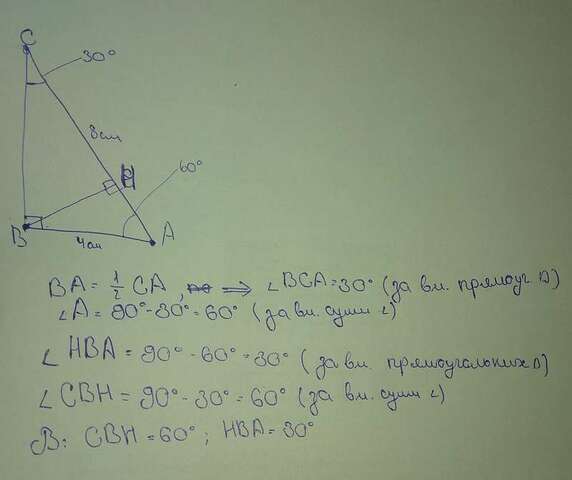 C
30°
8см
H
60°
B
4см
A
BA = 1/2 CA, => ∠BCA = 30° (за вл. прямоуг Δ)
∠A = 90°-30° = 60° (за вл. суми ∠)
∠HBA = 90° - 60° = 30° (за вл. прямоугольних Δ)
∠CBH = 90° - 30° = 60° (за вл. суми ∠)
В: CBH = 60° ; HBA = 30°